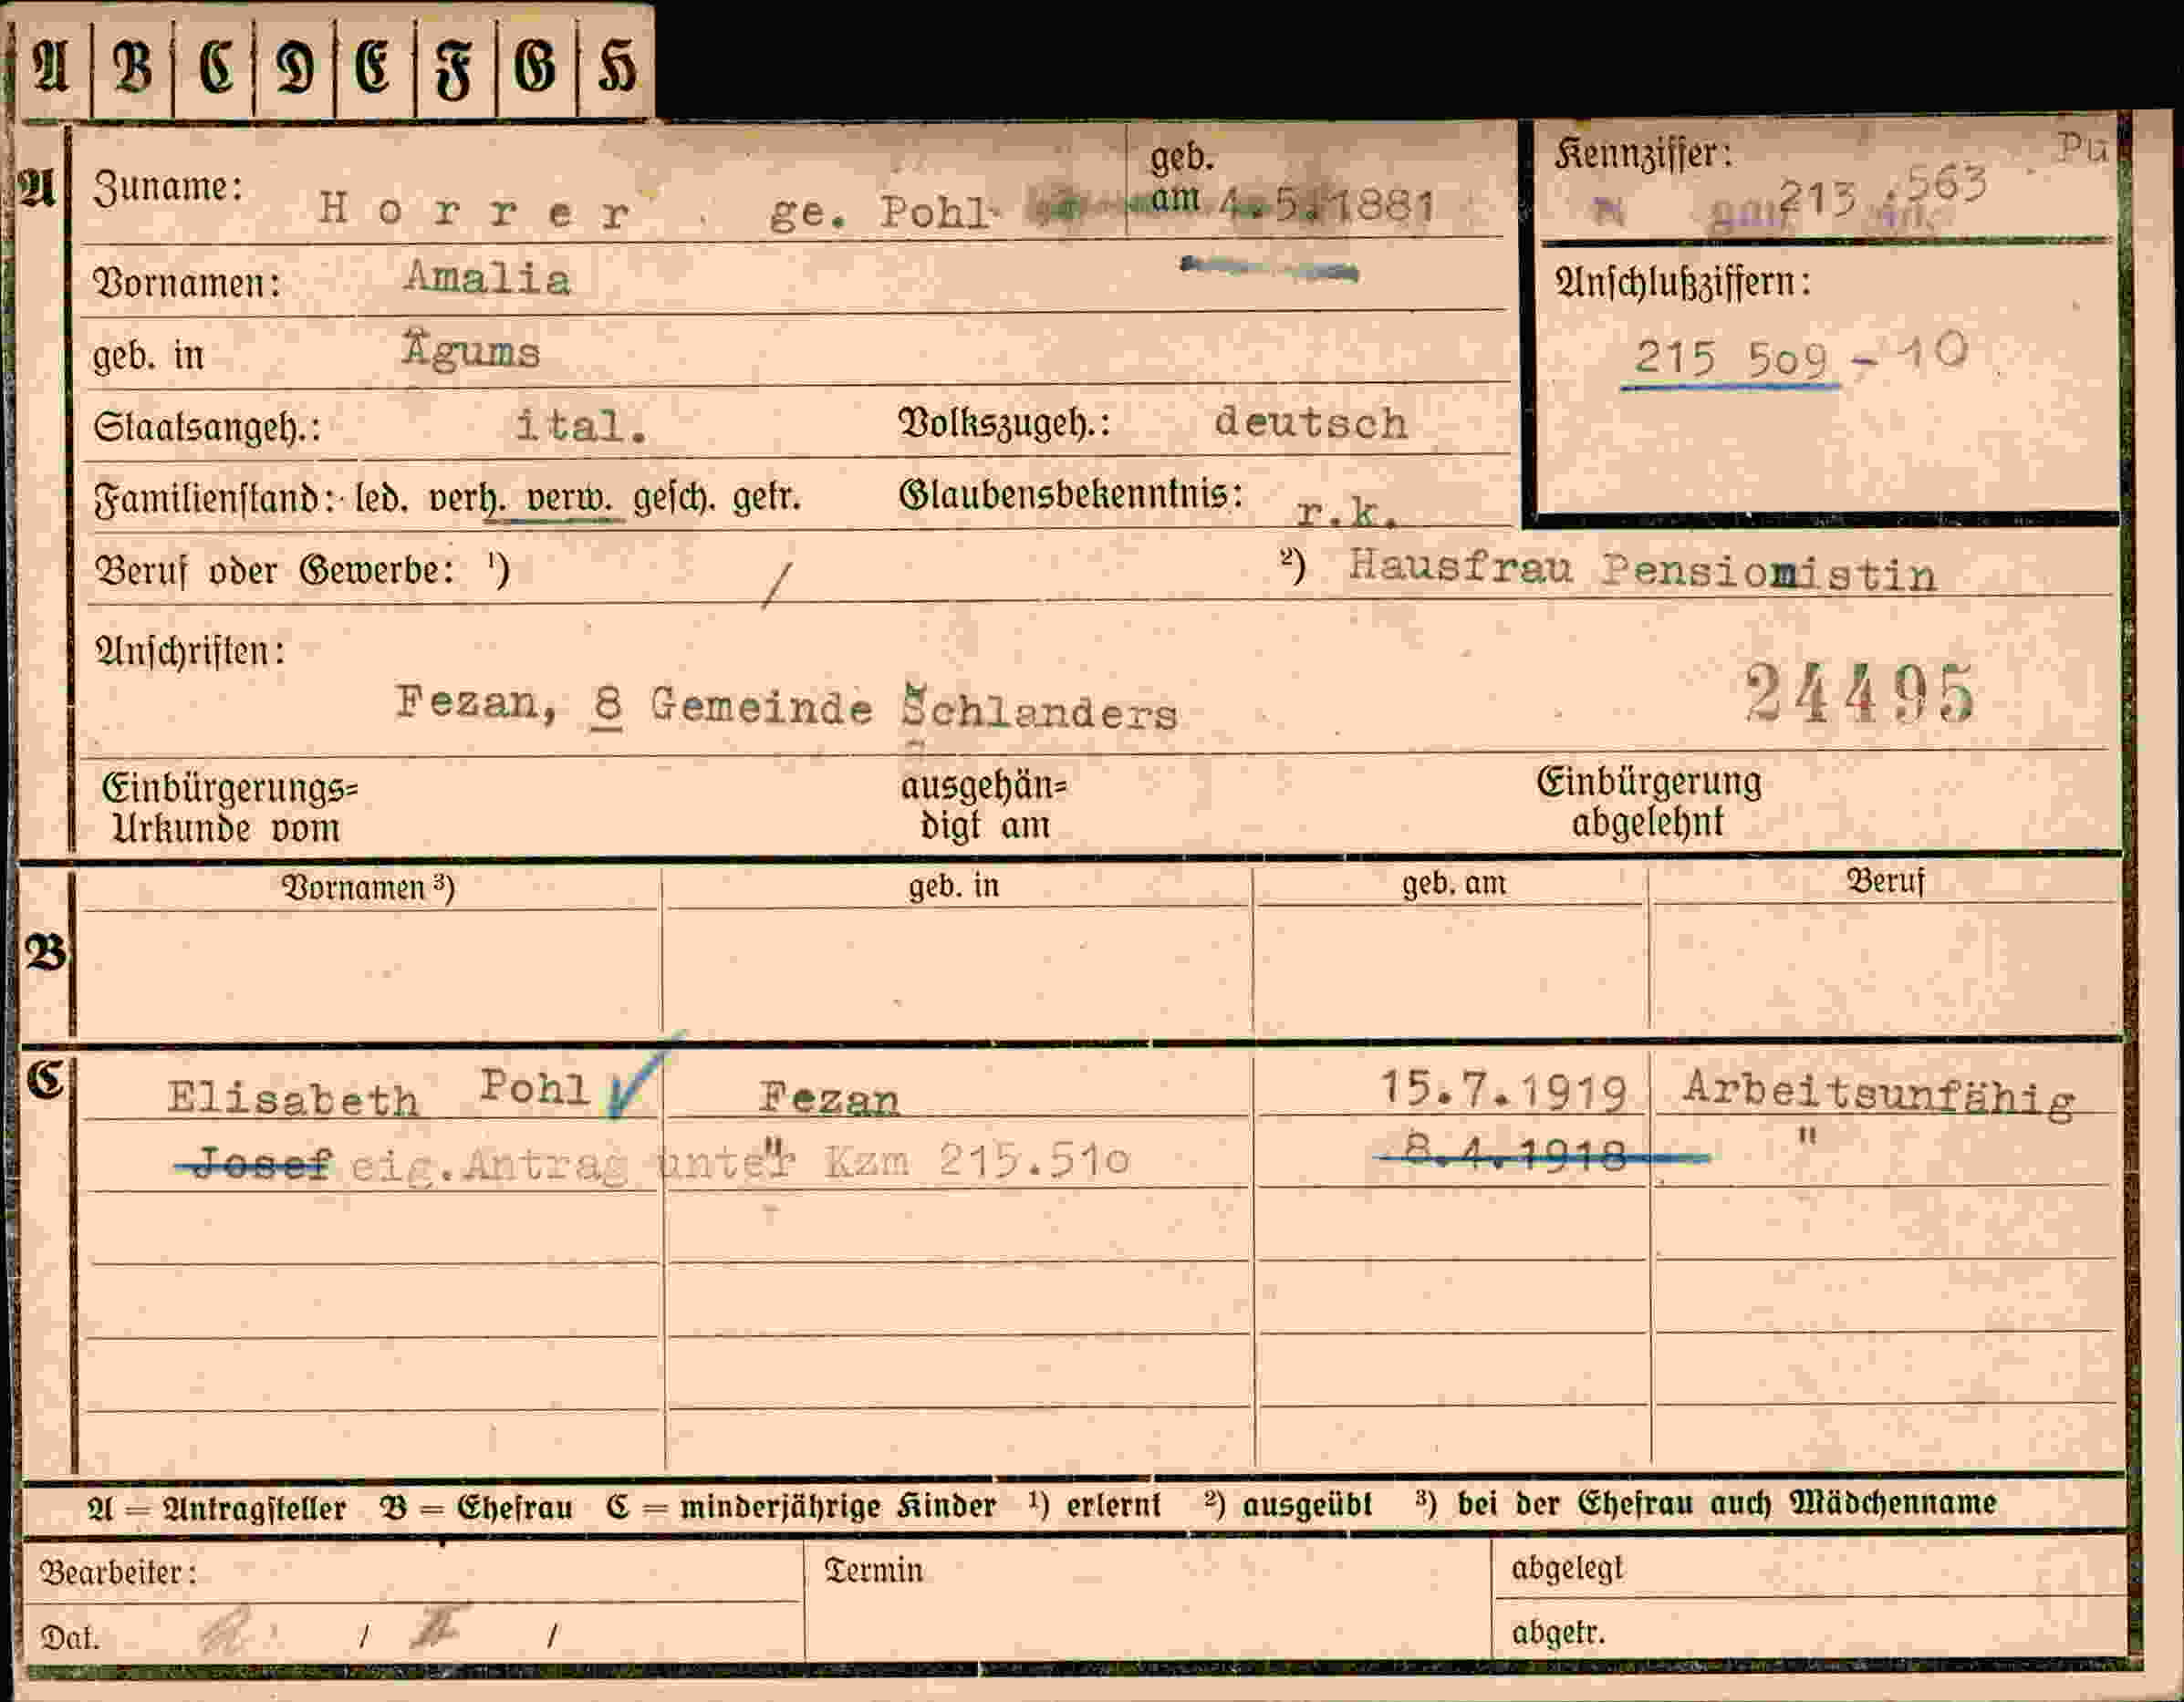 A B C D E F G H
A Zuname: Horrer ge. Pohl geb. am 4.5.1881
Kennziffer: 213.563 Pu
Vornamen: Amalia
Anschlußziffern:
geb. in Ägums
215 5o9 - 10
Staatsangeh.: ital. Volkszugeh.: deutsch
Familienstand: led. verh. verw. gesch. getr. Glaubensbekenntnis: r.k.
Beruf oder Gewerbe: 1) / 2) Hausfrau Pensionistin
Anschriften:
Fezan, 8 Gemeinde Schlanders
24495
Einbürgerungs=
Urkunde vom
ausgehän=
digt am
Einbürgerung
abgelehnt
B Vornamen 3) geb. in geb. am Beruf
C Elisabeth Pohl Fezan 15.7.1919 Arbeitsunfähig
Josef eig. Antrag unter " Kzm 215.51o 8.4.1918 "
A = Antragsteller B = Ehefrau C = minderjährige Kinder 1) erlernt 2) ausgeübt 3) bei der Ehefrau auch Mädchenname
Bearbeiter: Termin abgelegt
Dat. / / abgetr.